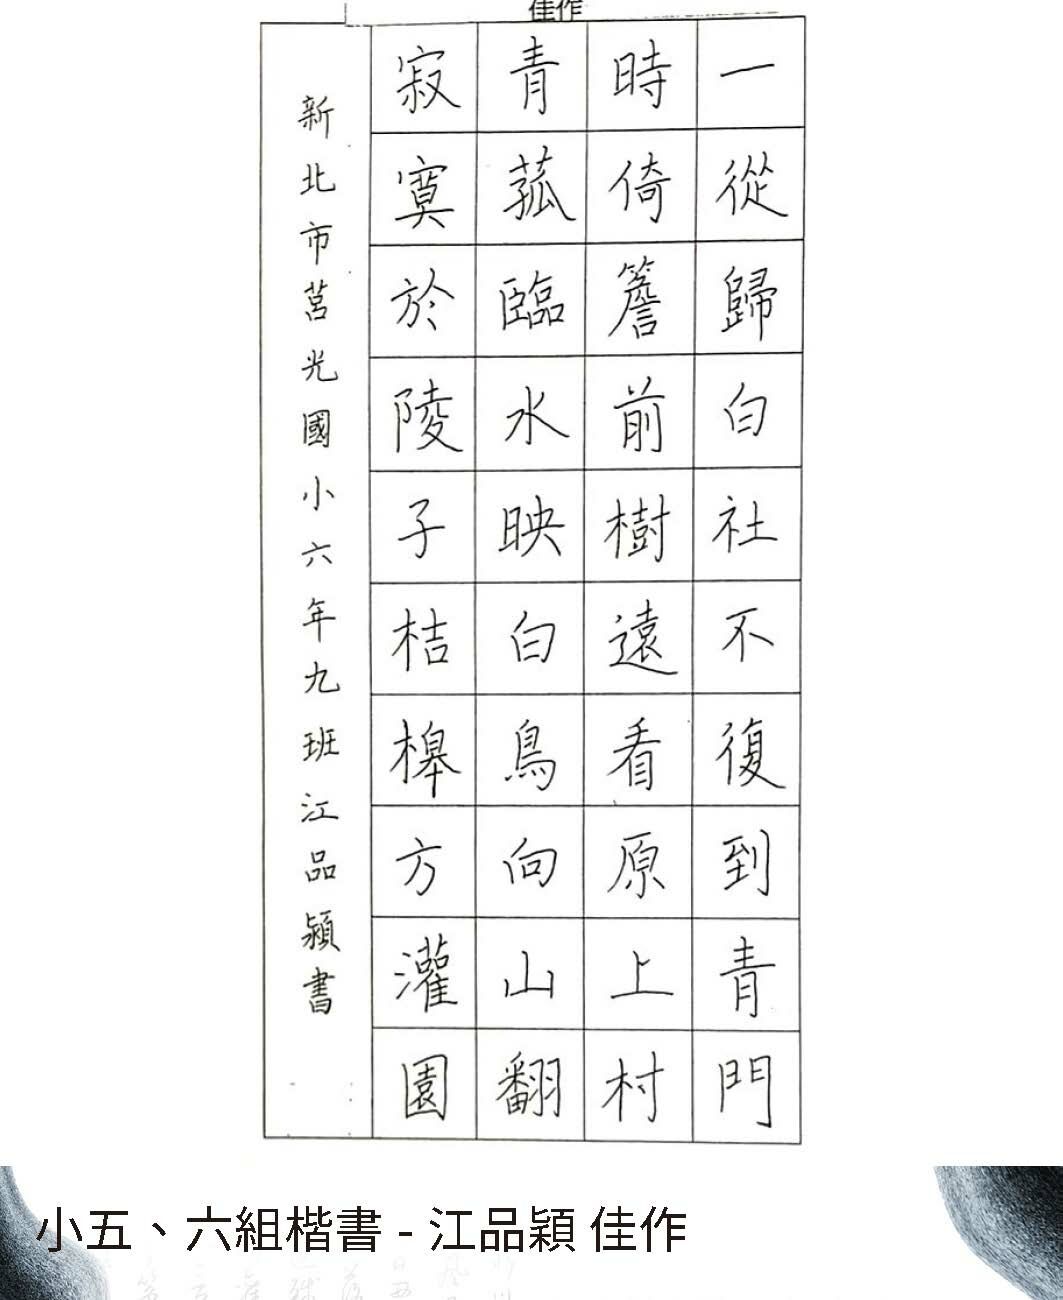 佳作
一從歸白社不復到青門
時倚簷前樹遠看原上村
青菰臨水映白鳥向山翻
寂寞於陵子桔槔方灌園
新北市莒光國小六年九班江品穎書
小五、六組楷書 - 江品穎 佳作